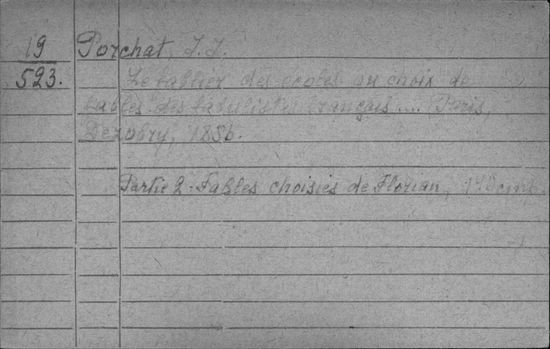 19 Porchat, J. J.
523. Le fablier des écoles ou choix de
fables des fabulistes français.... Paris,
Dezobry, 1856.
Partie 2 - Fables choisies de Florian,